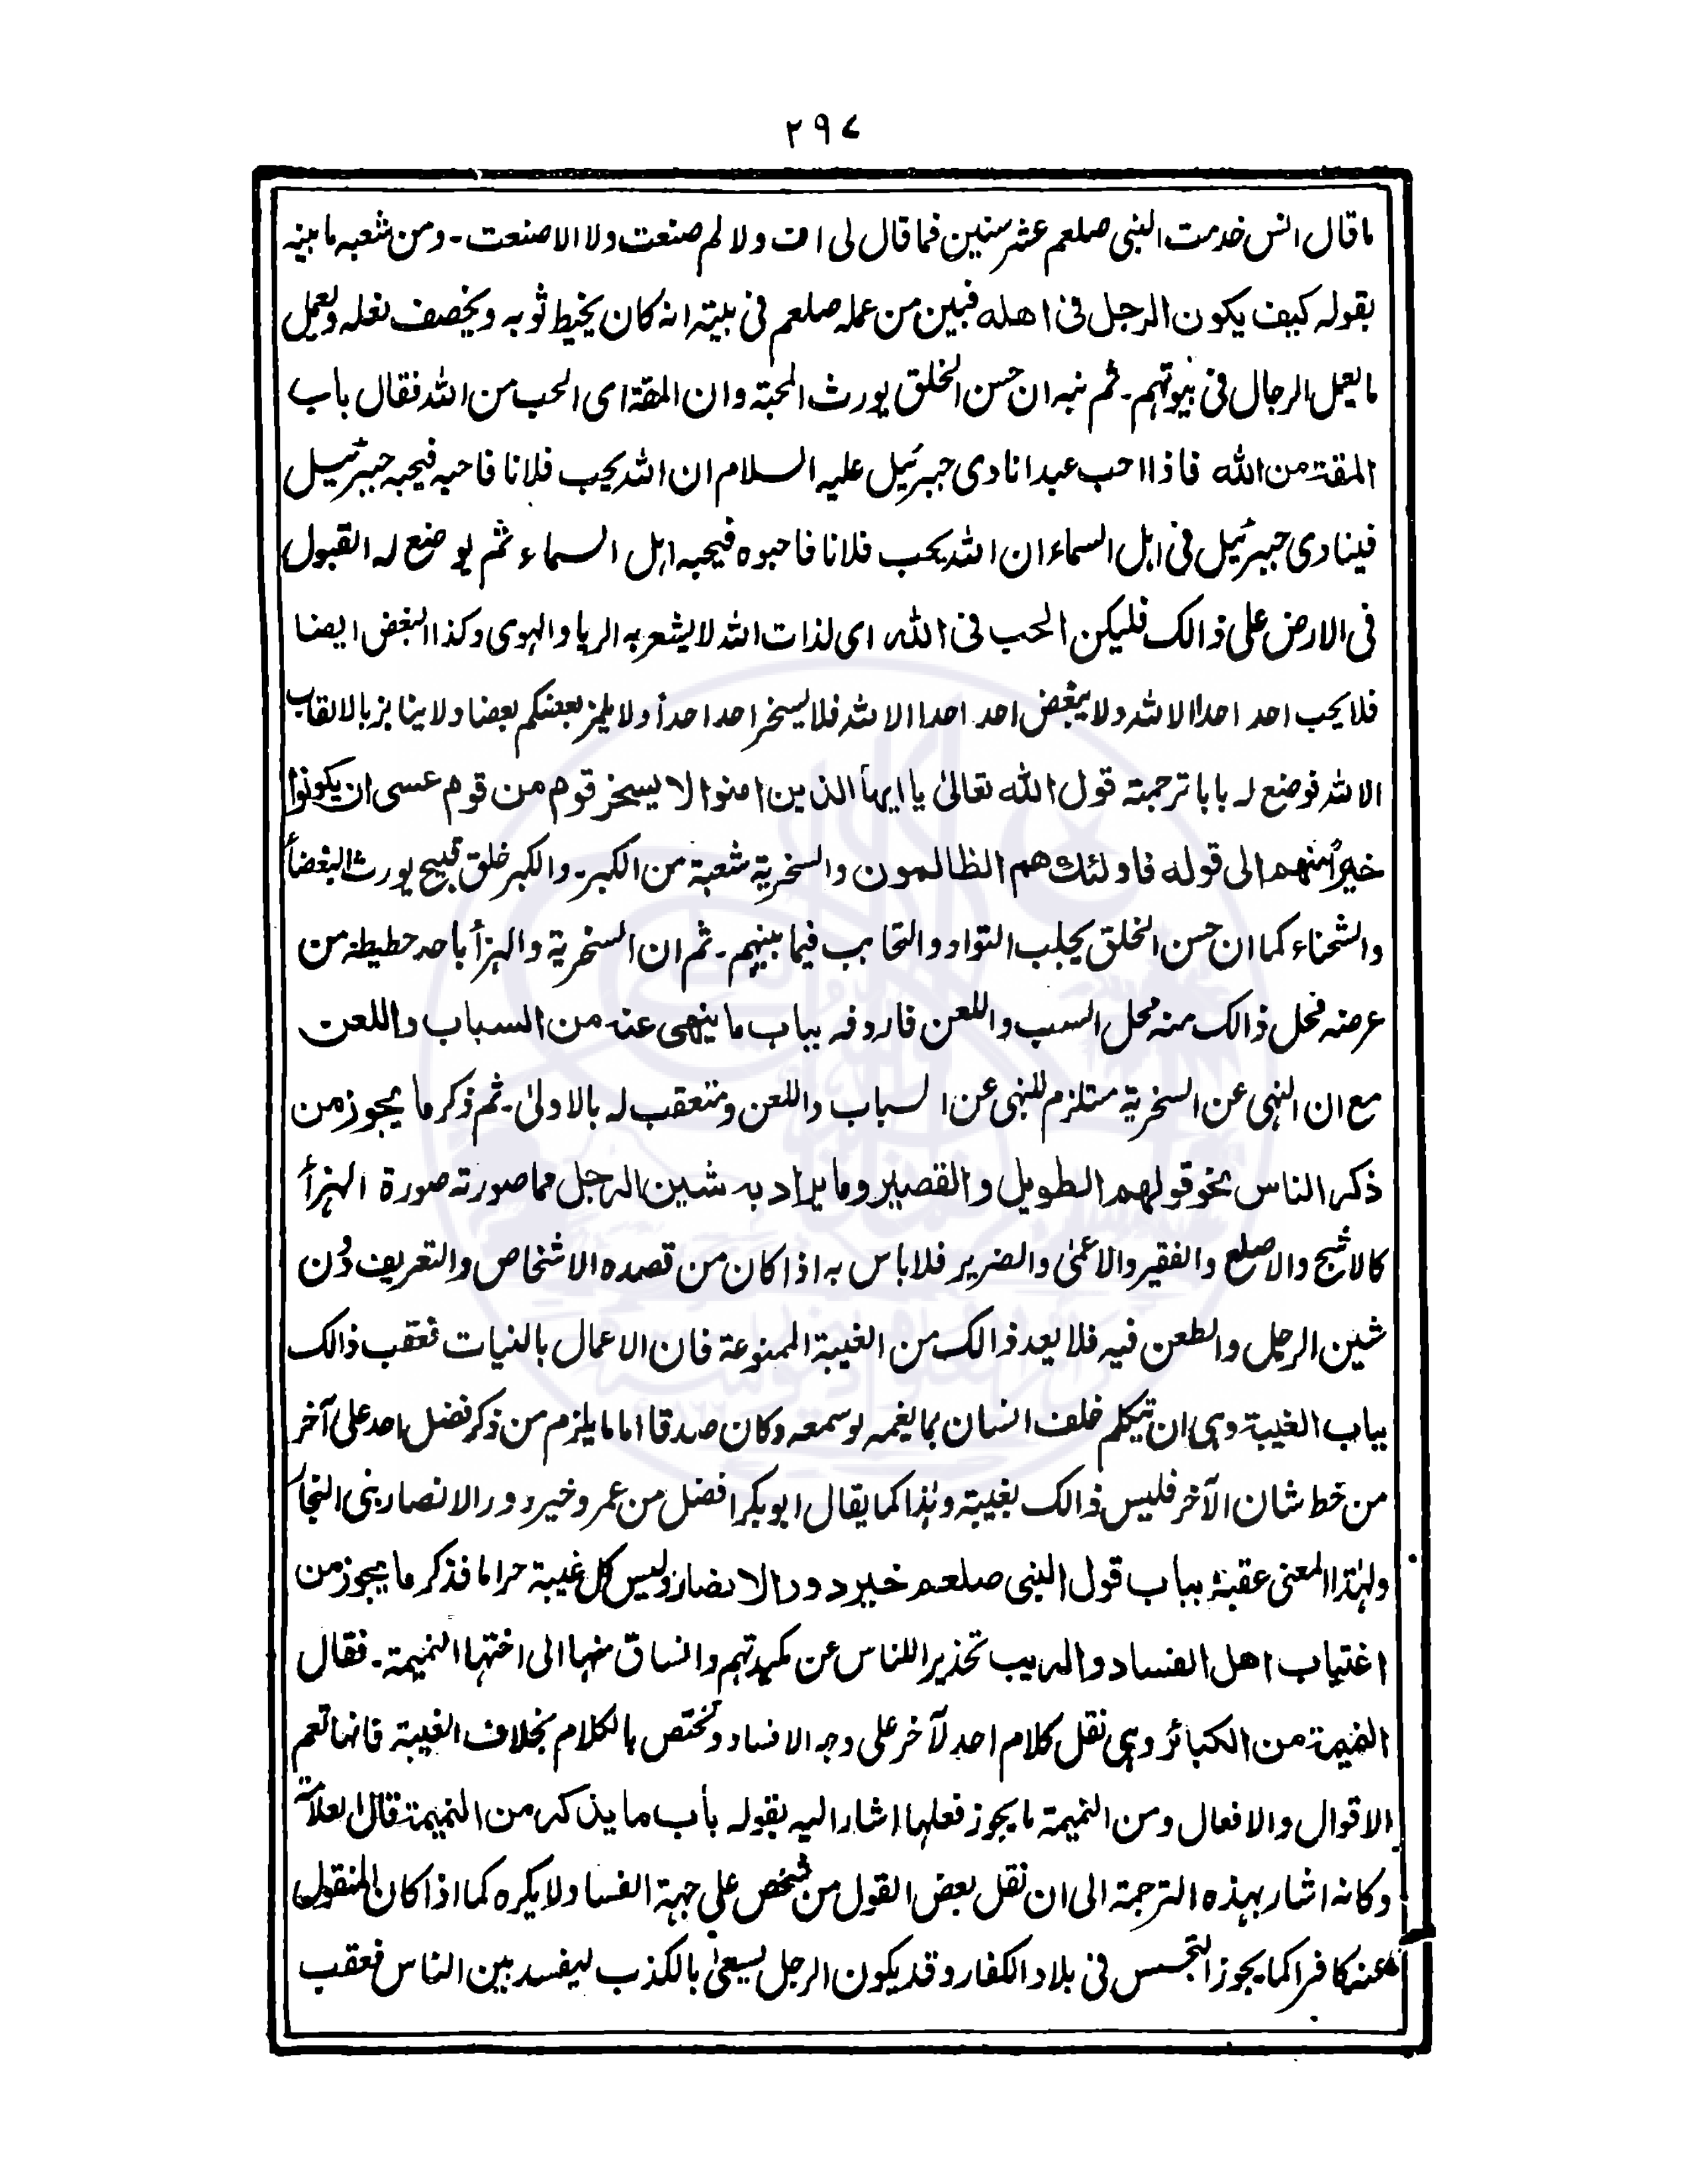 ۲۹۷
ما قال انس خدمت النبی صلعم عشر سنین فما قال لی اف ولا لم صنعت ولا الا صنعت۔ ومن شعبه ما بینه
بقوله کیف یکون الرجل فی اهله فبین من عمله صلعم فی بیته انه کان یخیط ثوبه ویخصف نعله ویعمل
ما یعمل الرجال فی بیوتهم۔ ثم نبه ان حسن الخلق یورث المحبة وان المقة ای الحب من الله فقال باب
المقة من الله فاذا احب عبدا نادی جبرئیل علیه السلام ان الله یحب فلانا فاحبه فیحبه جبرئیل
فینادی جبرئیل فی اهل السماء ان الله یحب فلانا فاحبوه فیحبه اهل السماء ثم یوضع له القبول
فی الارض علی ذالک فلیکن الحب فی الله ای لذات الله لا یشعر به الریا والهوی وکذا البغض ایضا
فلا یحب احد احدا الا لله ولا یبغض احد احدا الا لله فلا یسخر احد احدأ ولا یلمز بعضکم بعضا ولا ینابز بالالقاب
الا لله فوضع له بابا ترجمته قول الله تعالیٰ یا ایهأ الذین امنوا لا یسخر قوم من قوم عسی ان یکونوا
خیرأ منهم الی قوله فاولئک هم الظالمون والسخریة شعبة من الکبر۔ والکبر خلق قبیح یورث البغضأ
والشحناء کما ان حسن الخلق یجلب التوادد والتحابب فیما بینهم۔ ثم ان السخریة والهزأ باحد حطیطة من
عرضه فحل ذالک منه محل السب واللعن فاردفه بباب ما ینهی عنه من السباب واللعن
مع ان النهی عن السخریة مستلزم للنهی عن السباب واللعن ومتعقب له بالاولیٰ۔ ثم ذکر ما یجوز من
ذکر الناس نحو قولهم الطویل والقصیر وما یراد به شین الرجل مما صورته صورة الهزأ
کالاشج والاصلع والفقیر والاعمیٰ والضریر فلا باس به اذا کان من قصده الاشخاص والتعریف دُن
شین الرجل والطعن فیه فلا یعد ذالک من الغیبة الممنوعة فان الاعمال بالنیات فعقب ذالک
بباب الغیبة وهی ان تیکلم خلف انسان بما یغمه لو سمعه وکان صدقا اما ما یلزم من ذکر فضل احد علی آخر
من حط شان الآخر فلیس ذالک بغیبة وهٰذا کما یقال ابو بکر افضل من عمر وخیر دور الانصار بنی النجار
ولهٰذا المعنی عقبهٗ بباب قول النبی صلعم خیر دور الانصار ولیس کل غیبة حراما فذکر ما یجوز من
اغتیاب اهل الفساد والریب تحذیرا للناس عن مکیدتهم وانساق منها الی اختها النمیمة۔ فقال
النمیمة من الکبائر وهی نقل کلام احد لآخر علی وجه الافساد وتختص بالکلام بخلاف الغیبة فانها تعم
الاقوال والافعال ومن النمیمة ما یجوز فعلها اشار الیه بقوله بأب ما یذکر من النمیمة قال العلامة
وکانه اشار بهذه الترجمة الی ان نقل بعض القول من شخص علی جهة الفساد لا یکره کما اذا کان المنقول
عنه کافرا کما یجوز التجسس فی بلاد الکفار وقد یکون الرجل یسعیٰ بالکذب لیفسد بین الناس فعقب